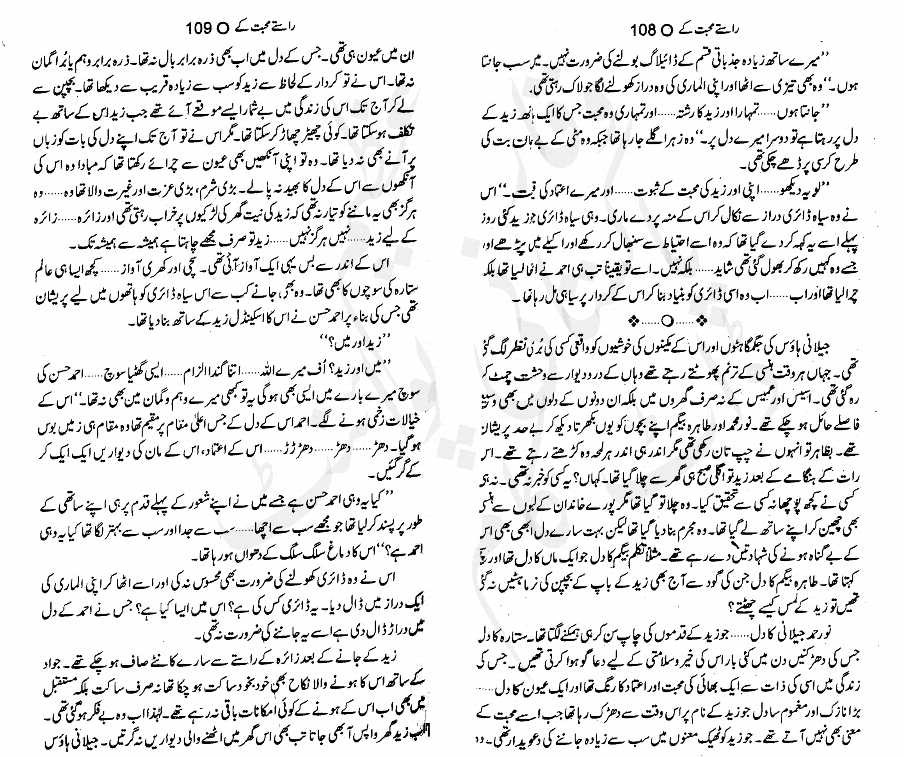 راستے محبت کے O 108
”میرے ساتھ زیادہ جذباتی قسم کے ڈائیلاگ بولنے کی ضرورت نہیں۔ میں سب جانتا
ہوں۔“ وہ بھی تیزی سے اٹھا اور اپنی الماری کی وہ دراز کھولنے لگا جو لاک رہتی تھی۔
”جانتا ہوں...... تمہارا اور زید کا رشتہ...... اور تمہاری وہ محبت جس کا ایک ہاتھ زید کے
دل پر رہتا ہے تو دوسرا میرے دل پر۔“ وہ زہر اگلے جا رہا تھا جبکہ وہ مٹی کے بے جان بت کی
طرح کرسی پر ڈھے چکی تھی۔
”لو یہ دیکھو...... اپنی اور زید کی محبت کے ثبوت...... اور میرے اعتماد کی قیمت۔“ اس
نے وہ سیاہ ڈائری دراز سے نکال کر اس کے منہ پر دے ماری۔ وہی سیاہ ڈائری جو زید کئی روز
پہلے اسے یہ کہہ کر دے گیا تھا کہ وہ اسے احتیاط سے سنبھال کر رکھے اور اکیلے میں پڑھے اور
جسے وہ کہیں رکھ کر بھول گئی تھی شاید...... بلکہ نہیں۔ اسے تو یقیناً تب ہی احمد نے اٹھا لیا تھا بلکہ
چرا لیا تھا اور اب...... اب وہ اسی ڈائری کو بنیاد بنا کر اس کے کردار پر سیاہی مل رہا تھا۔
❖......O......❖
جیلانی ہاؤس کی جگمگاہٹوں اور اس کے مکینوں کی خوشیوں کو واقعی کسی کی بُری نظر لگ گئی
تھی۔ جہاں ہر وقت ہنسی کے ترنم پھوٹتے رہتے تھے وہاں کے در و دیوار سے وحشت چمٹ کر
رہ گئی تھی۔ اسیس اور عمیس کے نہ صرف گھروں میں بلکہ ان دونوں کے دلوں میں بھی وسیع
فاصلے حائل ہو چکے تھے۔ نور محمد اور طاہرہ بیگم اپنے بچوں کو یوں بکھرتا دیکھ کر بے حد پریشان
تھے۔ بظاہر تو انہوں نے چپ تان رکھی تھی مگر اندر ہی اندر ہر لمحہ وہ کڑھتے رہتے تھے۔ اس
رات کے ہنگامے کے بعد زید تو اگلی صبح ہی گھر سے چلا گیا تھا۔ کہاں؟ یہ کسی کو خبر نہ تھی۔ نہ ہی
کسی نے کچھ پوچھا نہ کسی سے تحقیق کیا۔ وہ چلا تو گیا تھا مگر پورے خاندان کے لبوں سے ہنسی
بھی چھین کر اپنے ساتھ لے گیا تھا۔ وہ مجرم بنا دیا گیا تھا لیکن بہت سارے دل ابھی بھی اس
کے بے گناہ ہونے کی شہادتیں دے رہے تھے۔ مثلاً نظم بیگم کا دل جو ایک ماں کا دل تھا اور یہی
کہتا تھا۔ طاہرہ بیگم کا دل جن کی گود سے آج بھی زید کے باپ کے بچپن کی زماہٹیں نہ گئی
تھیں تو زید کے لمس کیسے چھٹتے؟
نور محمد جیلانی کا دل...... جو زید کے قدموں کی چاپ سن کر ہی تھکنے لگتا تھا۔ ستارہ کا دل
جس کی دھڑکنیں دن میں کئی بار اس کی خیر و سلامتی کے لیے دعا گو ہوا کرتی تھیں۔ جس کی
زندگی میں اسی کی ذات سے ایک بھائی کی محبت اور اعتماد کا رنگ تھا اور ایک عیون کا دل......
بڑا نازک اور مغموم سا دل جو زید کے نام پر اس وقت سے دھڑک رہا تھا جب اسے محبت کے
معنی بھی نہیں آتے تھے۔ جو زید کو ٹھیک معنوں میں سب سے زیادہ جاننے کی دعویدار تھی۔ وہ
راستے محبت کے O 109
ان میں عیون ہی تھی۔ جس کے دل میں اب بھی ذرہ برابر بال نہ تھا۔ ذرہ برابر وہم یا بُرا گمان
نہ تھا۔ اس نے تو کردار کے لحاظ سے زید کو سب سے زیادہ قریب سے دیکھا تھا۔ بچپن سے
لے کر آج تک اس کی زندگی میں بے شمار ایسے موقعے آئے تھے جب زید اس کے ساتھ بے
تکلف ہو سکتا تھا۔ کوئی چھیڑ چھاڑ کر سکتا تھا۔ مگر اس نے تو آج تک اپنے دل کی بات کو زباں
پر آنے بھی نہ دیا تھا۔ وہ تو اپنی آنکھیں بھی عیون سے چرائے رکھتا تھا کہ مبادا وہ اس کی
آنکھوں سے اس کے دل کا بھید نہ پا لے۔ بڑی شرم، بڑی عزت اور غیرت والا تھا وہ...... وہ
ہرگز بھی یہ ماننے کو تیار نہ تھی کہ زید کی نیت گھر کی لڑکیوں پر خراب رہتی تھی اور زائرہ...... زائرہ
کے لیے زید...... نہیں ہرگز نہیں...... زید تو صرف مجھے چاہتا ہے ہمیشہ سے ہمیشہ تک۔
اس کے اندر سے بس یہی ایک آواز آتی تھی۔ سچی اور کھری آواز...... کچھ ایسا ہی عالم
ستارہ کی سوچوں کا بھی تھا۔ وہ بھی، جانے کب سے اس سیاہ ڈائری کو ہاتھوں میں لیے پریشان
تھی جس کی بناء پر احمد حسن نے اس کا اسکینڈل زید کے ساتھ بنا دیا تھا۔
”زید اور میں؟“
”میں اور زید؟ اُف میرے اللہ...... اتنا گندا الزام...... ایسی گھٹیا سوچ...... احمد حسن کی
سوچ میرے بارے میں ایسی بھی ہو گی یہ تو کبھی میرے وہم و گمان میں بھی نہ تھا۔“ اس کے
خیالات زخمی ہونے لگے۔ احمد اس کے دل کے جس اعلیٰ مقام پر مقیم تھا وہ مقام ہی زمیں بوس
ہو گیا۔ دھڑ...... دھڑ...... دھڑڑڑ...... اس کے اعتماد، اس کے مان کی دیواریں ایک ایک کر
کے گر گئیں۔
”کیا یہ وہی احمد حسن ہے جسے میں نے اپنے شعور کے پہلے قدم پر ہی اپنے ساتھی کے
طور پر پسند کر لیا تھا جو مجھے سب سے اچھا...... سب سے جدا اور سب سے بہتر لگا تھا کیا یہ وہی
احمد ہے؟“ اس کا دماغ سلگ سلگ کے دھواں ہو رہا تھا۔
اس نے وہ ڈائری کھولنے کی ضرورت بھی محسوس نہ کی اور اسے اٹھا کر اپنی الماری کی
ایک دراز میں ڈال دیا۔ یہ ڈائری کس کی ہے؟ اس میں ایسا کیا ہے؟ جس نے احمد کے دل
میں دراڑ ڈال دی ہے اسے یہ جاننے کی ضرورت نہ تھی۔
زید کے جانے کے بعد زائرہ کے راستے سے سارے کانٹے صاف ہو چکے تھے۔ جواد
کے ساتھ اس کا ہونے والا نکاح بھی خود بخود ساکت ہو چکا تھا نہ صرف ساکت بلکہ مستقبل
میں بھی اب اس کے ہونے کے کوئی امکانات باقی نہ رہے تھے۔ لہٰذا اب وہ بے فکر ہو گئی تھی۔
اب زید گھر واپس آ بھی جاتا تب بھی اس گھر میں اٹھنے والی دیواریں نہ گرتیں۔ جیلانی ہاؤس